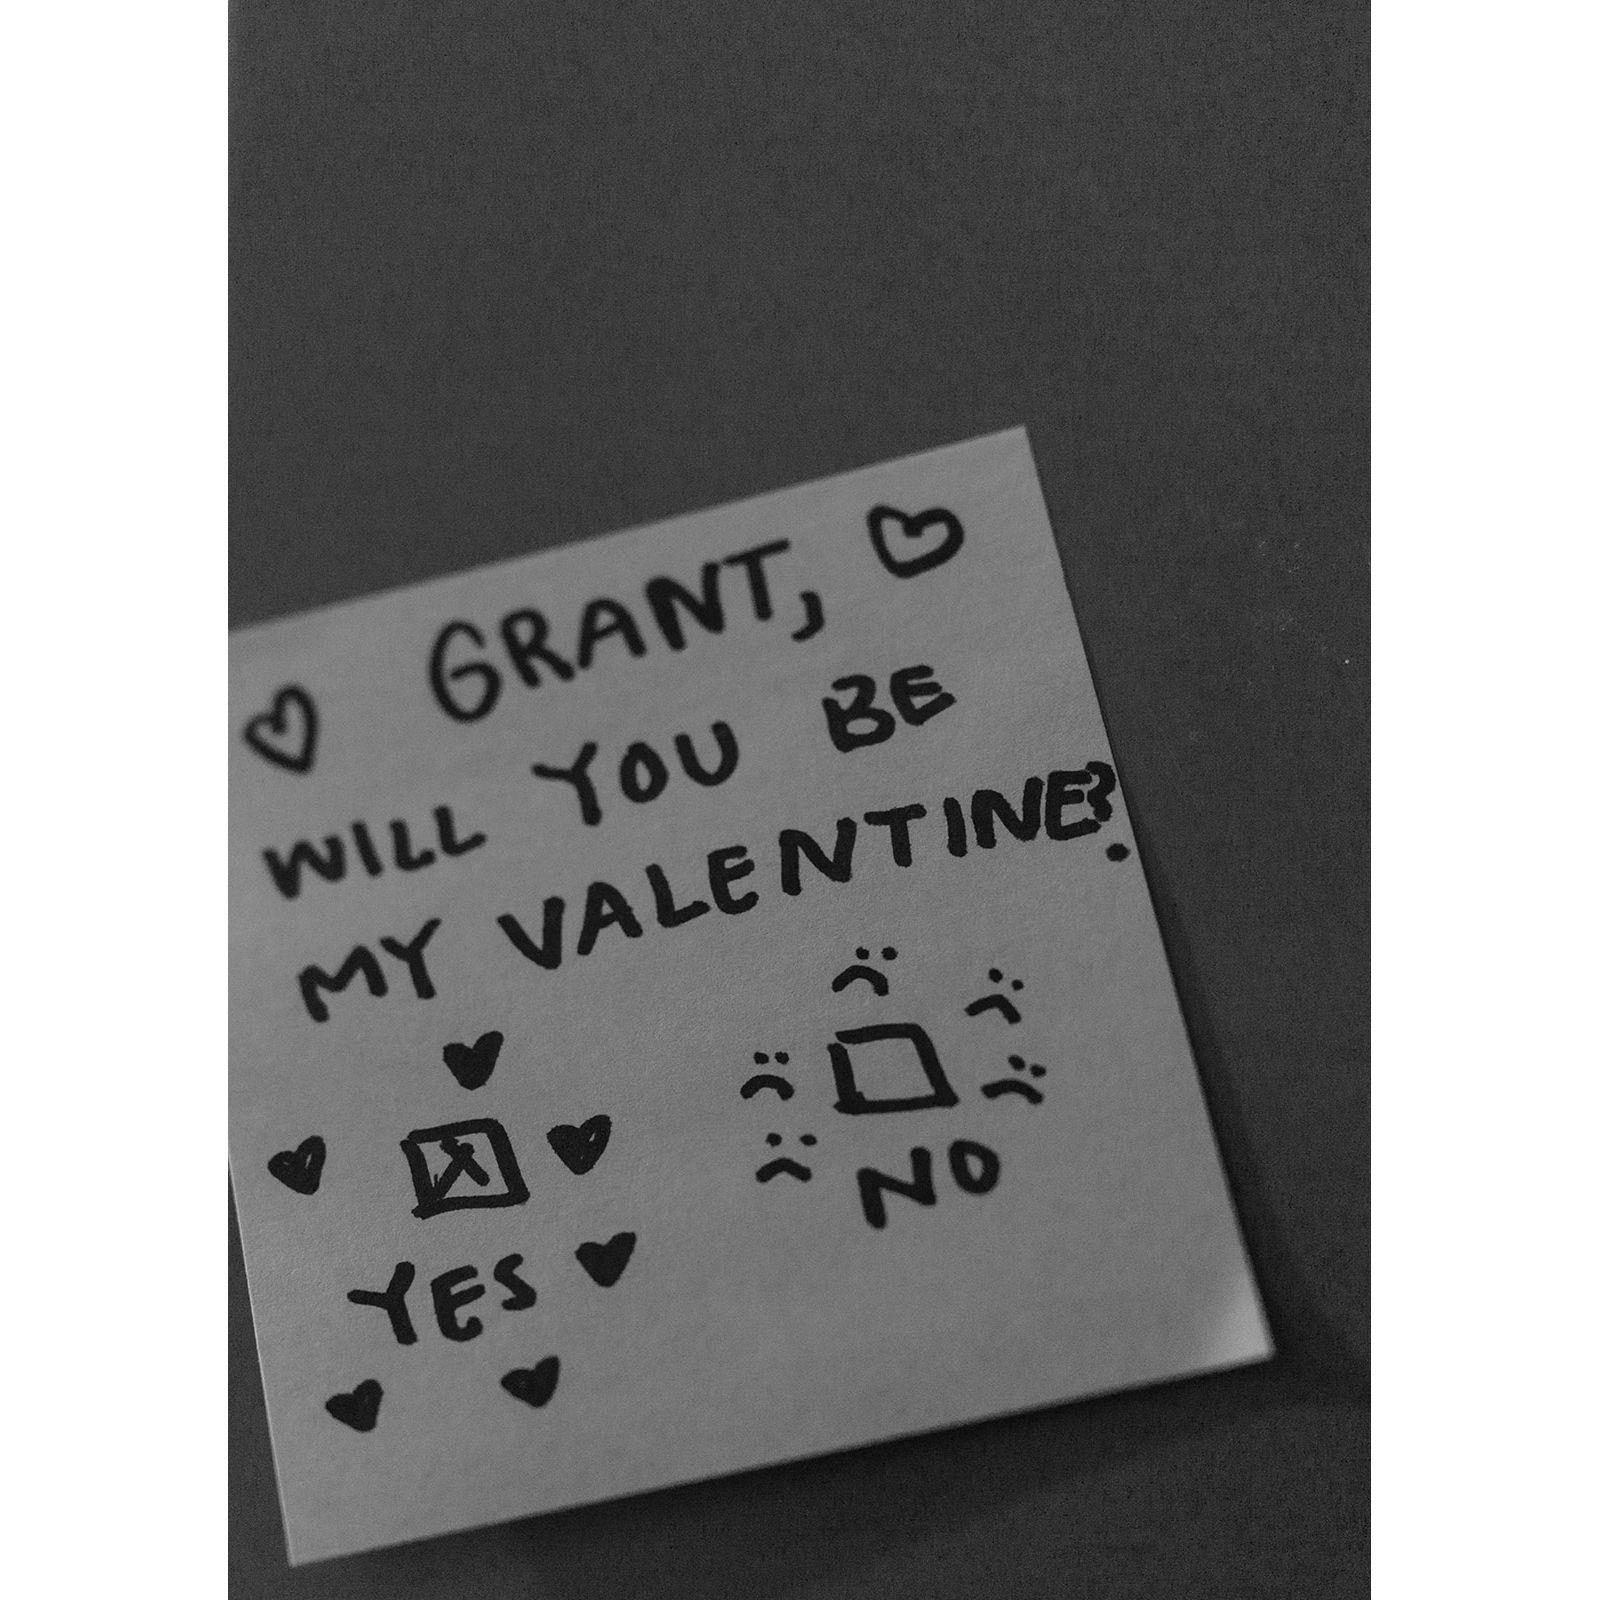 GRANT,
WILL YOU BE
MY VALENTINE?
X
YES
NO